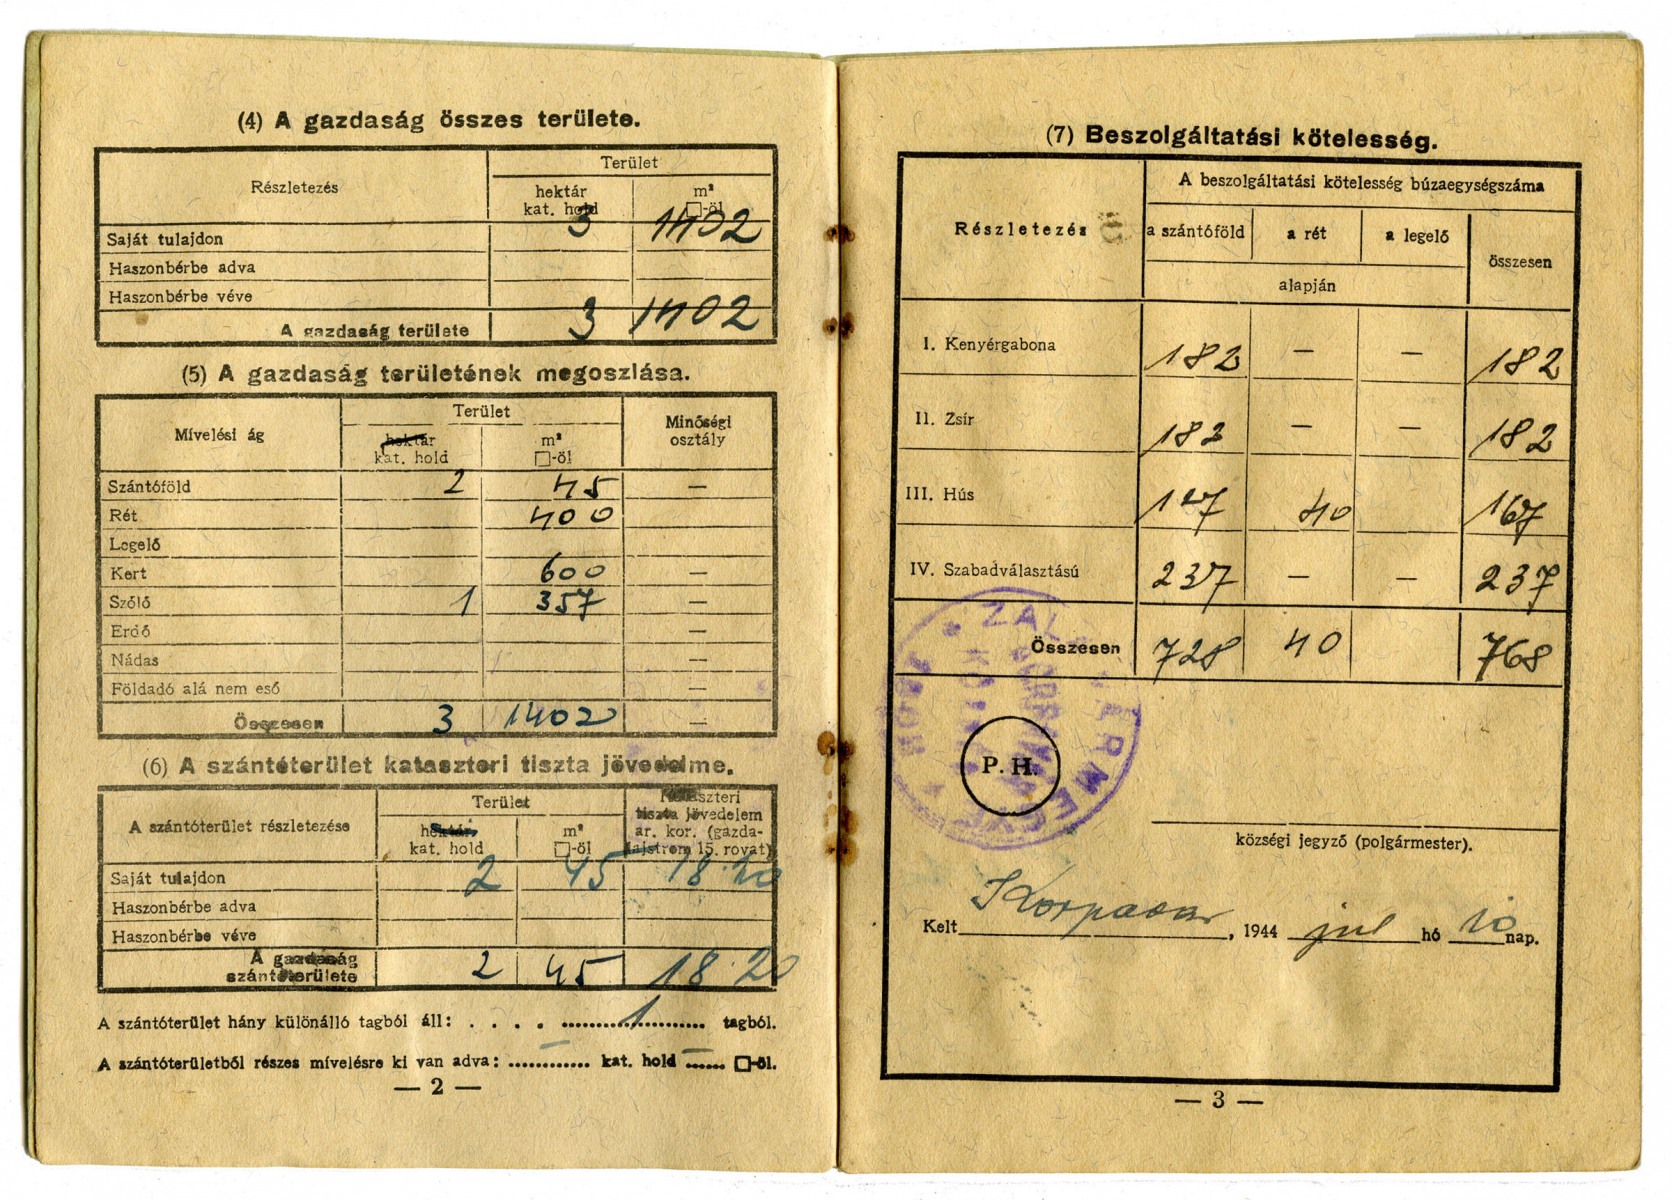 (4) A gazdaság összes területe.
Részletezés
Terület
hektár
kat. hold
m²
□-öl
Saját tulajdon 3 1402
Haszonbérbe adva
Haszonbérbe véve
A gazdaság területe 3 1402
(5) A gazdaság területének megoszlása.
Mívelési ág
Terület
Minőségi
osztály
hektár
kat. hold
m²
□-öl
Szántóföld 2 45 —
Rét 400
Legelő
Kert 600 —
Szőlő 1 357 —
Erdő —
Nádas —
Földadó alá nem eső —
Összesen 3 1402 —
(6) A szántóterület kataszteri tiszta jövedelme.
A szántóterület részletezése
Terület
hektár
kat. hold
m²
□-öl
Kataszteri
tiszta jövedelem
ar. kor. (gazda-
lajstrom 15. rovat)
Saját tulajdon 2 45 18·20
Haszonbérbe adva
Haszonbérbe véve
A gazdaság
szántóterülete 2 45 18·20
A szántóterület hány különálló tagból áll: . . . . 1 tagból.
A szántóterületből részes mívelésre ki van adva: — kat. hold — □-öl.
— 2 —
(7) Beszolgáltatási kötelesség.
Részletezés
A beszolgáltatási kötelesség búzaegységszáma
a szántóföld
a rét
a legelő
összesen
alapján
I. Kenyérgabona 182 — — 182
II. Zsír 182 — — 182
III. Hús 127 40 167
IV. Szabadválasztású 237 — — 237
Összesen 728 40 768
P. H.
községi jegyző (polgármester).
Kelt , 1944 jul hó 10 nap.
— 3 —